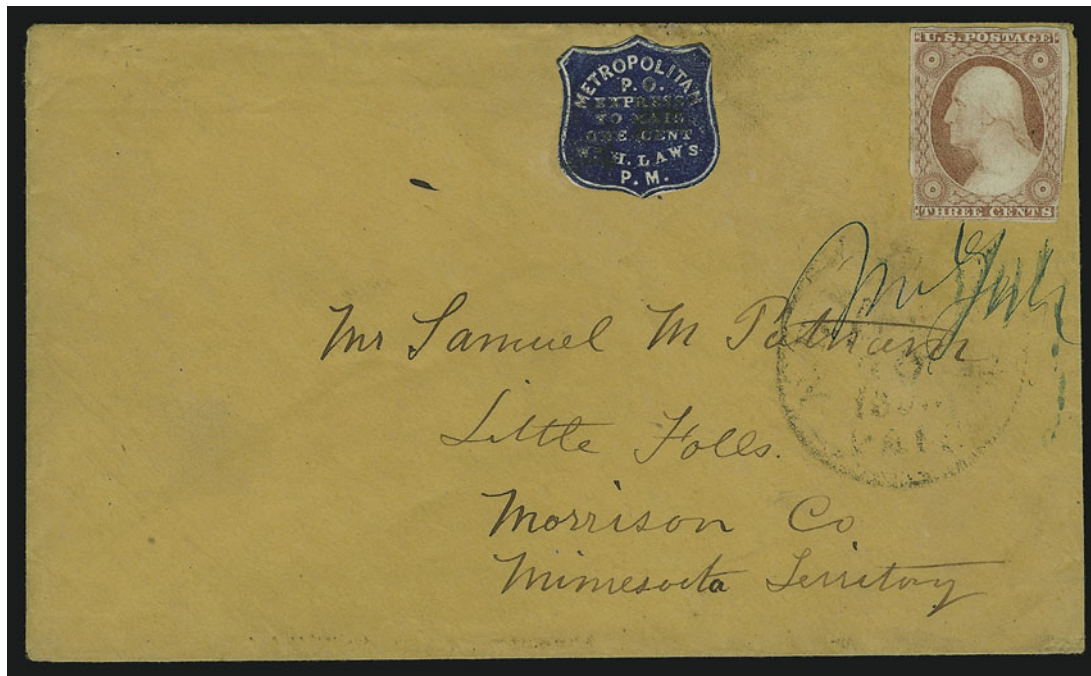 METROPOLITAN
P. O.
EXPRESS
TO MAIL
ONE CENT
WM H. LAWS
P. M.
U.S. POSTAGE
THREE CENTS
Mr Samuel M Putnam
Little Falls.
Morrison Co
Minnesota Territory